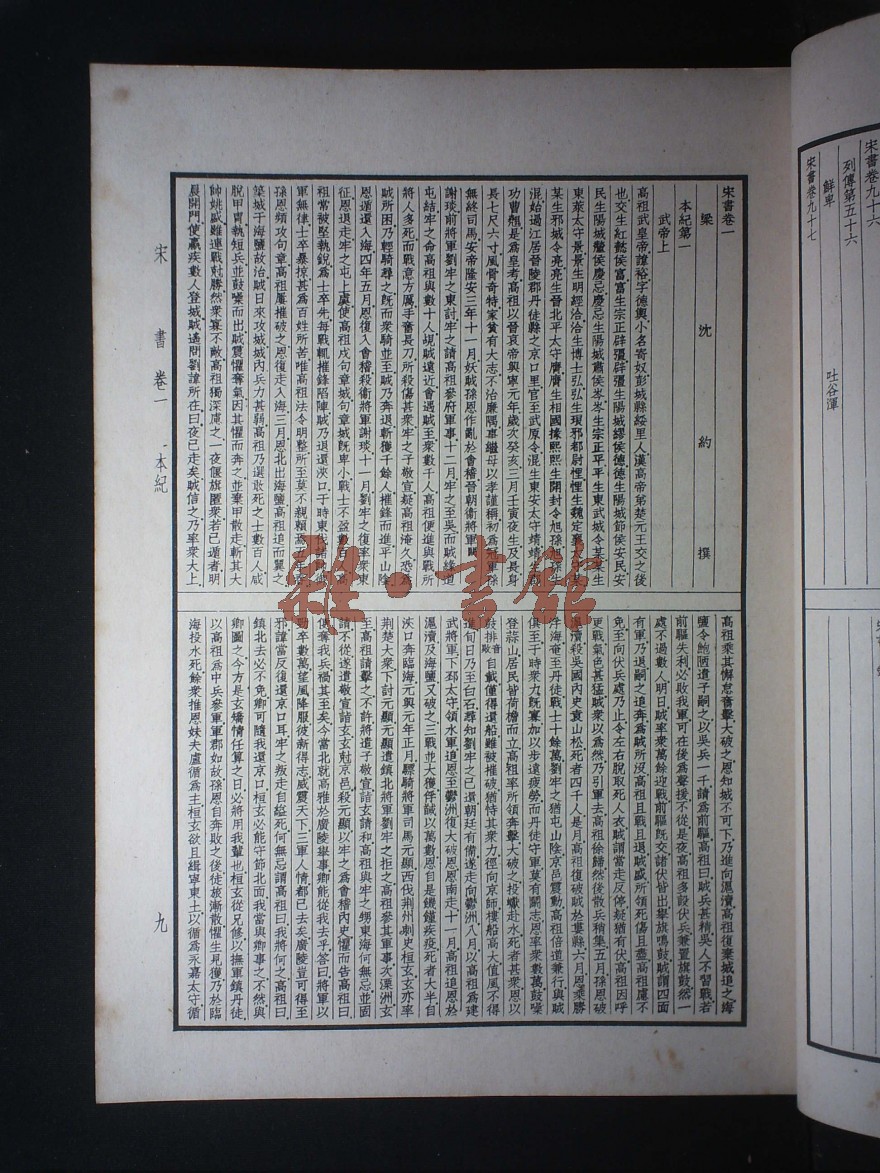 宋書卷九十六
列傳第五十六
鮮卑　吐谷渾
宋書卷九十七
宋書卷一
梁　沈　約　撰
本紀第一
武帝上
高祖武皇帝諱裕字德輿小名寄奴彭城縣綏里人漢高帝弟楚元王交之後
也交生紅懿侯富富生宗正辟彊辟彊生陽城繆侯德德生陽城節侯安民安
民生陽城釐侯慶忌慶忌生陽城肅侯岑岑生宗正平平生東武城令某某生
東萊太守景景生明經洽洽生博士弘弘生琅邪都尉悝悝生魏定襄太守某
某生邪城令亮亮生晉北平太守膺膺生相國掾熙熙生開封令旭孫旭孫生
混始過江居晉陵郡丹徒縣之京口里官至武原令混生東安太守靖靖生郡
功曹翹是為皇考高祖以晉哀帝興寧元年歲次癸亥三月壬寅夜生及長身
長七尺六寸風骨奇特家貧有大志不治廉隅事繼母以孝謹稱初為冠軍孫
無終司馬安帝隆安三年十一月妖賊孫恩作亂於會稽晉朝衛將軍
謝琰前將軍劉牢之東討牢之請高祖參府軍事十二月牢之至吳而賊緣道
屯結牢之命高祖與數十人覘賊遠近會遇賊至衆數千人高祖便進與戰所
將人多死而戰意方厲手奮長刀所殺傷甚衆牢之子敬宣疑高祖淹久恐為
賊所困乃輕騎尋之既而衆騎並至賊乃奔退斬獲千餘人摧鋒而進平山陰
恩遁還入海四年五月恩復入會稽殺衛將軍謝琰十一月劉牢之復率衆東
征恩退走牢之屯上虞使高祖戍句章城句章城既卑小戰士不盈數百人高
祖常被堅執銳為士卒先每戰輒摧鋒陷陣賊乃退還浹口于時東
軍無律士卒暴掠甚為百姓所苦唯高祖法令明整所至莫不親賴焉五年
孫恩頻攻句章高祖屢摧破之恩復走入海三月恩北出海鹽高祖追而翼之
築城于海鹽故治賊日來攻城城內兵力甚弱高祖乃選敢死之士數百人咸
脫甲冑執短兵並鼓噪而出賊震懼奪氣因其懼而奔之並棄甲散走斬其大
帥姚盛雖連戰剋勝然衆寡不敵高祖獨深慮之一夜偃旗匿衆若已遁者明
晨開門使羸疾數人登城賊遙問劉諱所在曰夜已走矣賊信之乃率衆大上
高祖乘其懈怠奮擊大破之恩知城不可下乃進向滬瀆高祖復棄城追之海
鹽令鮑陋遣子嗣之以吳兵一千請為前驅高祖曰賊兵甚精吳人不習戰若
前驅失利必敗我軍可在後為聲援不從是夜高祖多設伏兵兼置旗鼓然一
處不過數人明日賊率衆萬餘迎戰前驅既交諸伏皆出舉旗鳴鼓賊謂四面
有軍乃退嗣之追奔為賊所沒高祖且戰且退賊盛所領死傷且盡高祖慮不
免至向伏兵處乃止令左右脫取死人衣賊謂當走反停疑猶有伏高祖因呼
更戰氣色甚猛賊衆以為然乃引軍去高祖徐歸然後散兵稍集五月孫恩破
滬瀆殺吳國內史袁山松死者四千人是月高祖復破賊於婁縣六月恩乘勝
浮海奄至丹徒戰士十餘萬劉牢之猶屯山陰京邑震動高祖倍道兼行與賊
俱至于時衆力既寡加以步遠疲勞而丹徒守軍莫有鬭志恩率衆數萬鼓噪
登蒜山居民皆荷檐而立高祖率所領奔擊大破之投巘赴水死者甚衆恩以
鼓排音敗自載僅得還船雖被摧破猶恃其衆力徑向京師樓船高大值風不得
進旬日乃至白石尋知劉牢之已還朝廷有備遂走向鬱洲八月以高祖為建
武將軍下邳太守領水軍追恩至鬱洲復大破恩恩南走十一月高祖追恩於
滬瀆及海鹽又破之三戰並大獲俘馘以萬數恩自是饑饉疾疫死者大半自
浹口奔臨海元興元年正月驃騎將軍司馬元顯西伐荊州刺史桓玄玄亦率
荊楚大衆下討元顯元顯遣鎮北將軍劉牢之拒之高祖參其軍事次溧洲玄
至高祖請擊之不許將遣子敬宣詣玄請和高祖與牢之甥東海何無忌並固
請不從遂遣敬宣詣玄玄剋京邑殺元顯以牢之為會稽內史懼而告高祖曰
便奪我兵禍其至矣今當北就高雅於廣陵舉事卿能從我去乎答曰將軍以
勁卒數萬望風降服彼新得志威震天下三軍人情都已去矣廣陵豈可得至
邪諱當反復還京口耳牢之叛走自縊死何無忌謂高祖曰我將何之高祖曰
鎮北去必不免卿可隨我還京口桓玄必能守節北面我當與卿事之不然與
卿圖之今方是玄矯情任算之日必將用我輩也桓玄從兄修以撫軍鎮丹徒
以高祖為中兵參軍軍郡如故孫恩自奔敗之後徒旅漸散懼生見獲乃於臨
海投水死餘衆推恩妹夫盧循為主桓玄欲且緝寧東土以循為永嘉太守循
宋　書　卷一　本紀
九
雜·書館